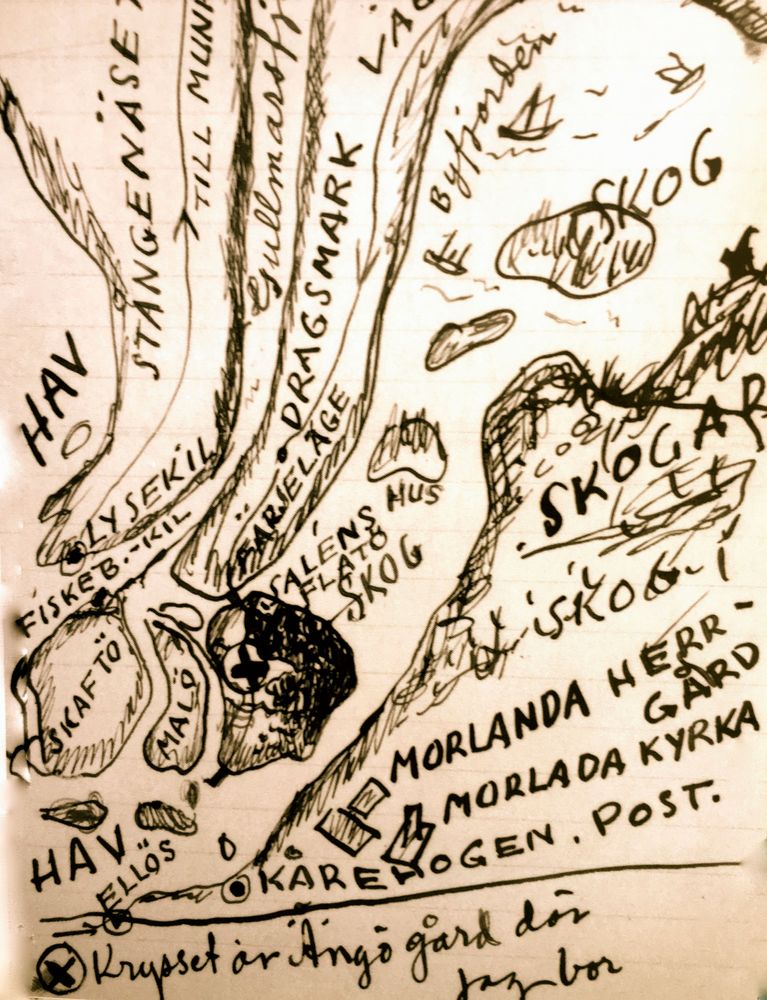 STÄNGENÄSET
TILL MUNK
Gullmarsfj
LÄG
Byfjorden
SKOG
DRAGSMARK
HAV
SKOGAR
LYSEKIL
FÄRJELÄGE
HUS
FISKEB.-KIL
SALÉNS
FLATÖ
SKOG
SKOG
SKAFTÖ
MALÖ
MORLANDA HERR-
GÅRD
MORLADA KYRKA
HAV
ELLÖS
KÅREHOGEN. POST.
Krysset är Ängö gård där
jag bor